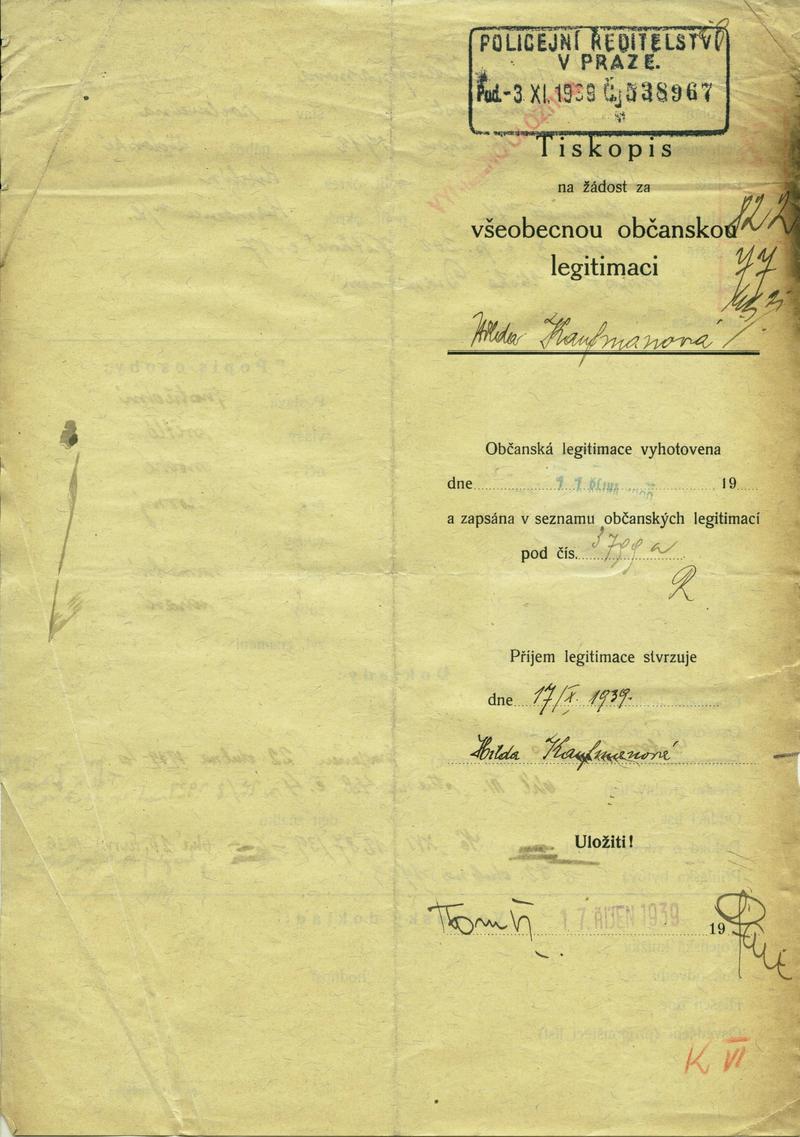 POLICEJNÍ ŘEDITELSTVÍ
V PRAZE.
Pod. -3. XI. 1939 Čj 538967
Tiskopis
na žádost za
všeobecnou občanskou
legitimaci
822
77
Hilda Kaufmanová
Občanská legitimace vyhotovena
dne 19
a zapsána v seznamu občanských legitimací
pod čís. 3799 a
R
Příjem legitimace stvrzuje
dne 17/X. 1939.
Hilda Kaufmanová
Uložiti!
17. ŘÍJEN 1939 19
K VI